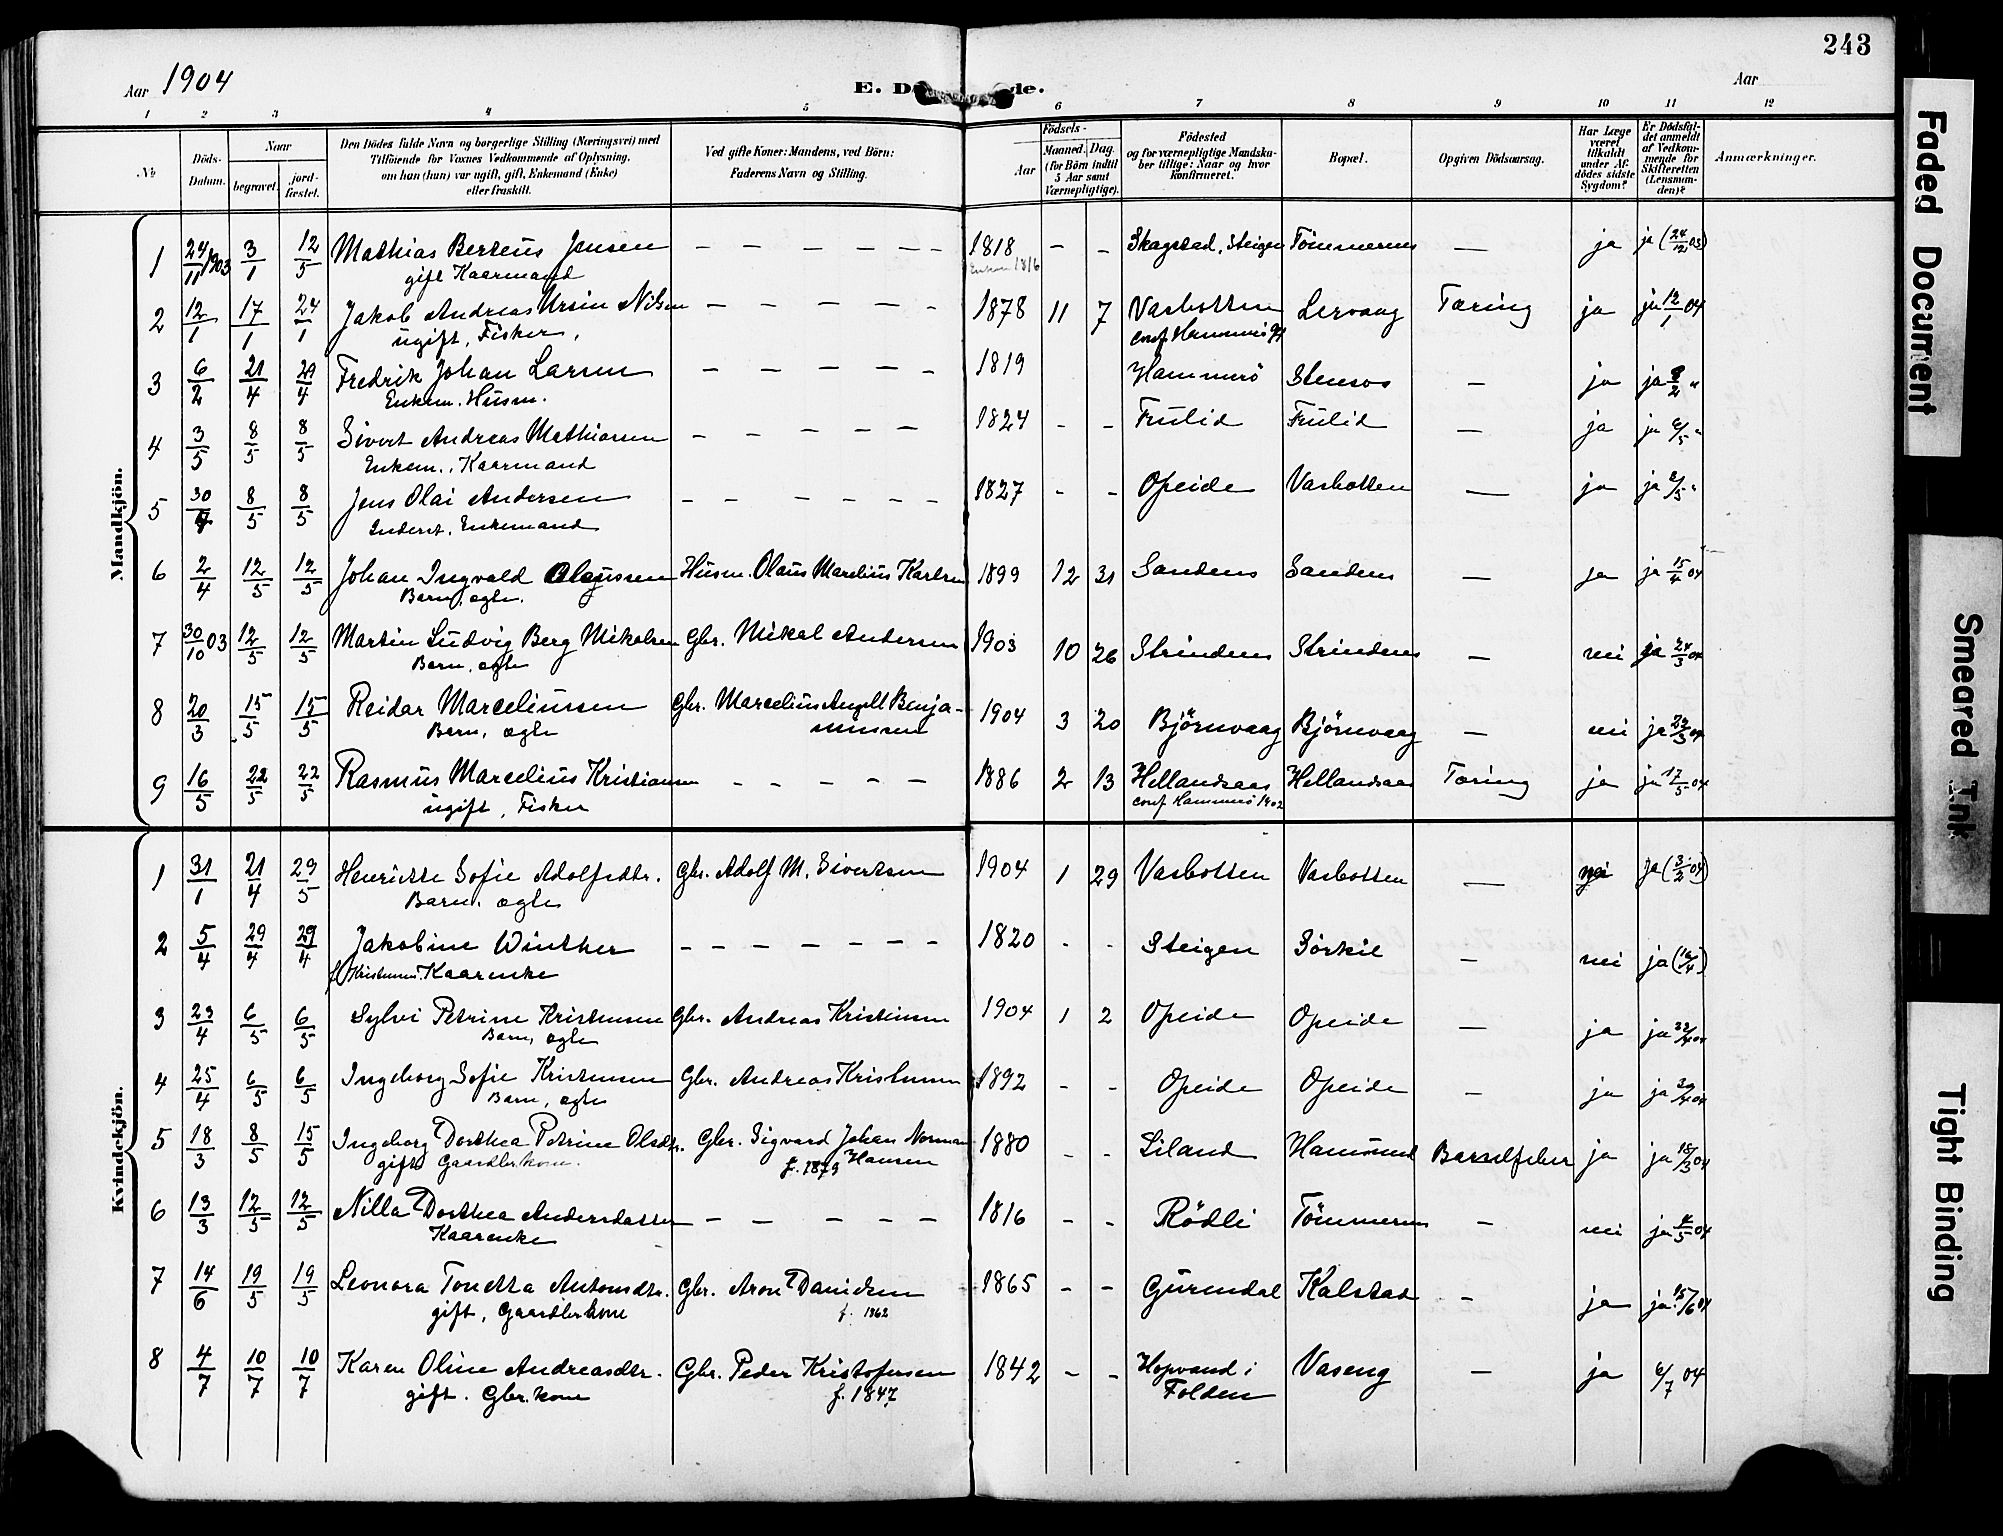 243
Aar 1904
E. Dø de.
Aar
1 2 3 4 5 6 7 8 9 10 11 12
No
Döds-Datum.
Naar
begravet.
jord-fæstet.
Den Dödes fulde Navn og borgerlige Stilling (Næringsvei) med
Tilföiende for Voxnes Vedkommende af Oplysning,
om han (hun) var ugift, gift, Enkemand (Enke)
eller fraskilt.
Ved gifte Koner: Mandens, ved Börn:
Faderens Navn og Stilling.
Födsels-
Aar
Maaned. Dag.
(for Börn indtil
5 Aar samt
Værnepligtige).
Födested
og for værnepligtige Mandska-
ber tillige: Naar og hvor
konfirmeret.
Bopæl.
Opgiven Dödsaarsag.
Har Læge
været
tilkaldt
under Af-
dödes sidste
Sygdom?
Er Dödsfal-
det anmeldt
af Vedkom-
mende for
Skifteretten
(Lensman-
den)?
Anmærkninger.
Mandkjön.
1 24/11 1903 3/1 12/5 Mathias Berteus Jensen – – – – – – – 1818 – – Skagstad, Steigen Tömmernes — ja ja (24/12 03)
gift Kaarmand
2 12/1 17/1 24/1 Jakob Andreas Ursin Nilsen – – – – – – 1878 11 7 Vasbotten Lervaag Tæring ja ja 12/1 04
ugift, Fisker, conf Hammerö 94
3 6/2 21/4 29/4 Fredrik Johan Larsen – – – – – – 1819 Hammerö Stensos – ja ja 8/2 "
Enkem. Husm.
4 3/5 8/5 8/5 Sivert Andreas Mathiasen – – – – – – 1824 - - Frulid Frulid — ja ja 6/5 "
Enkem., Kaarmand
5 30/4 8/5 8/5 Jens Olai Andersen – – – – – – 1827 - - Opeide Vasbotten — ja ja 2/5 "
Inderst, Enkemand
6 2/4 12/5 12/5 Johan Ingvald Olaussen Husm. Olaus Marelius Karlsen 1899 12 31 Sandnes Sandnes – ja ja 15/4 04
Barn, ægte.
7 30/10 03 12/5 12/5 Martin Ludvig Berg Mikalsen Gbr. Mikal Andersen 1903 10 26 Strindnes Strindnes – nei ja 24/3 04
Barn, ægte
8 20/3 15/5 15/5 Reidar Marceliussen Gbr. Marcelius Angell Benja- 1904 3 20 Björnvaag Björnvaag – nei ja 29/3 04
Barn, ægte minsen
9 16/5 22/5 22/5 Rasmus Marcelius Kristiansen – – – – – 1886 2 13 Hellandsaas Hellandsaas Tæring ja ja 17/5 04
ugift, Fisker conf Hammerö 1902
Kvindekjön.
1 31/1 21/4 29/5 Henriette Sofie Adolfsdtr. Gbr. Adolf M. Sivertsen 1904 1 29 Vasbotten Vasbotten — nei ja (3/2 04)
Barn, ægte
2 5/4 29/4 29/4 Jakobine Winther – – – – – – – 1820 - - Steigen Sörkil – nei ja (16/4)
f. Kristensen. Kaarenke
3 23/4 6/5 6/5 Sylvi Petrine Kristensen Gbr. Andreas Kristensen 1904 1 2 Opeide Opeide — ja ja 04
Barn, ægte
4 25/4 6/5 6/5 Ingeborg Sofie Kristensen Gbr. Andreas Kristensen 1892 - - Opeide Opeide – ja ja 04
Barn, ægte
5 18/3 8/5 15/5 Ingeborg Dorthea Petrine Olsdtr. Gbr. Sigvard Johan Norman 1880 - - Liland Hamsund Barselfeber ja ja 18/3 04
gift Gaardbr.kone. f. 1879 Hansen
6 13/3 12/5 12/5 Nilla Dorthea Andersdatter – – – – – 1816 - - Rödli Tömmernes – nei ja 4/5 04
Kaarenke
7 14/6 19/5 19/5 Leonora Tonetta Antonsdtr. Gbr. Aron Danielsen 1865 - - Gurendal Kalstad – ja ja 15/6 04
gift, Gaardbr.kone f. 1862
8 4/7 10/7 10/7 Karen Oline Andreasdtr. Gbr. Peder Kristofersen 1842 - - Hopvand i Vaseng — ja 6/7 04
gift. Gbr.kone f. 1847 Folden
Faded Document
Smeared Ink
Tight Binding